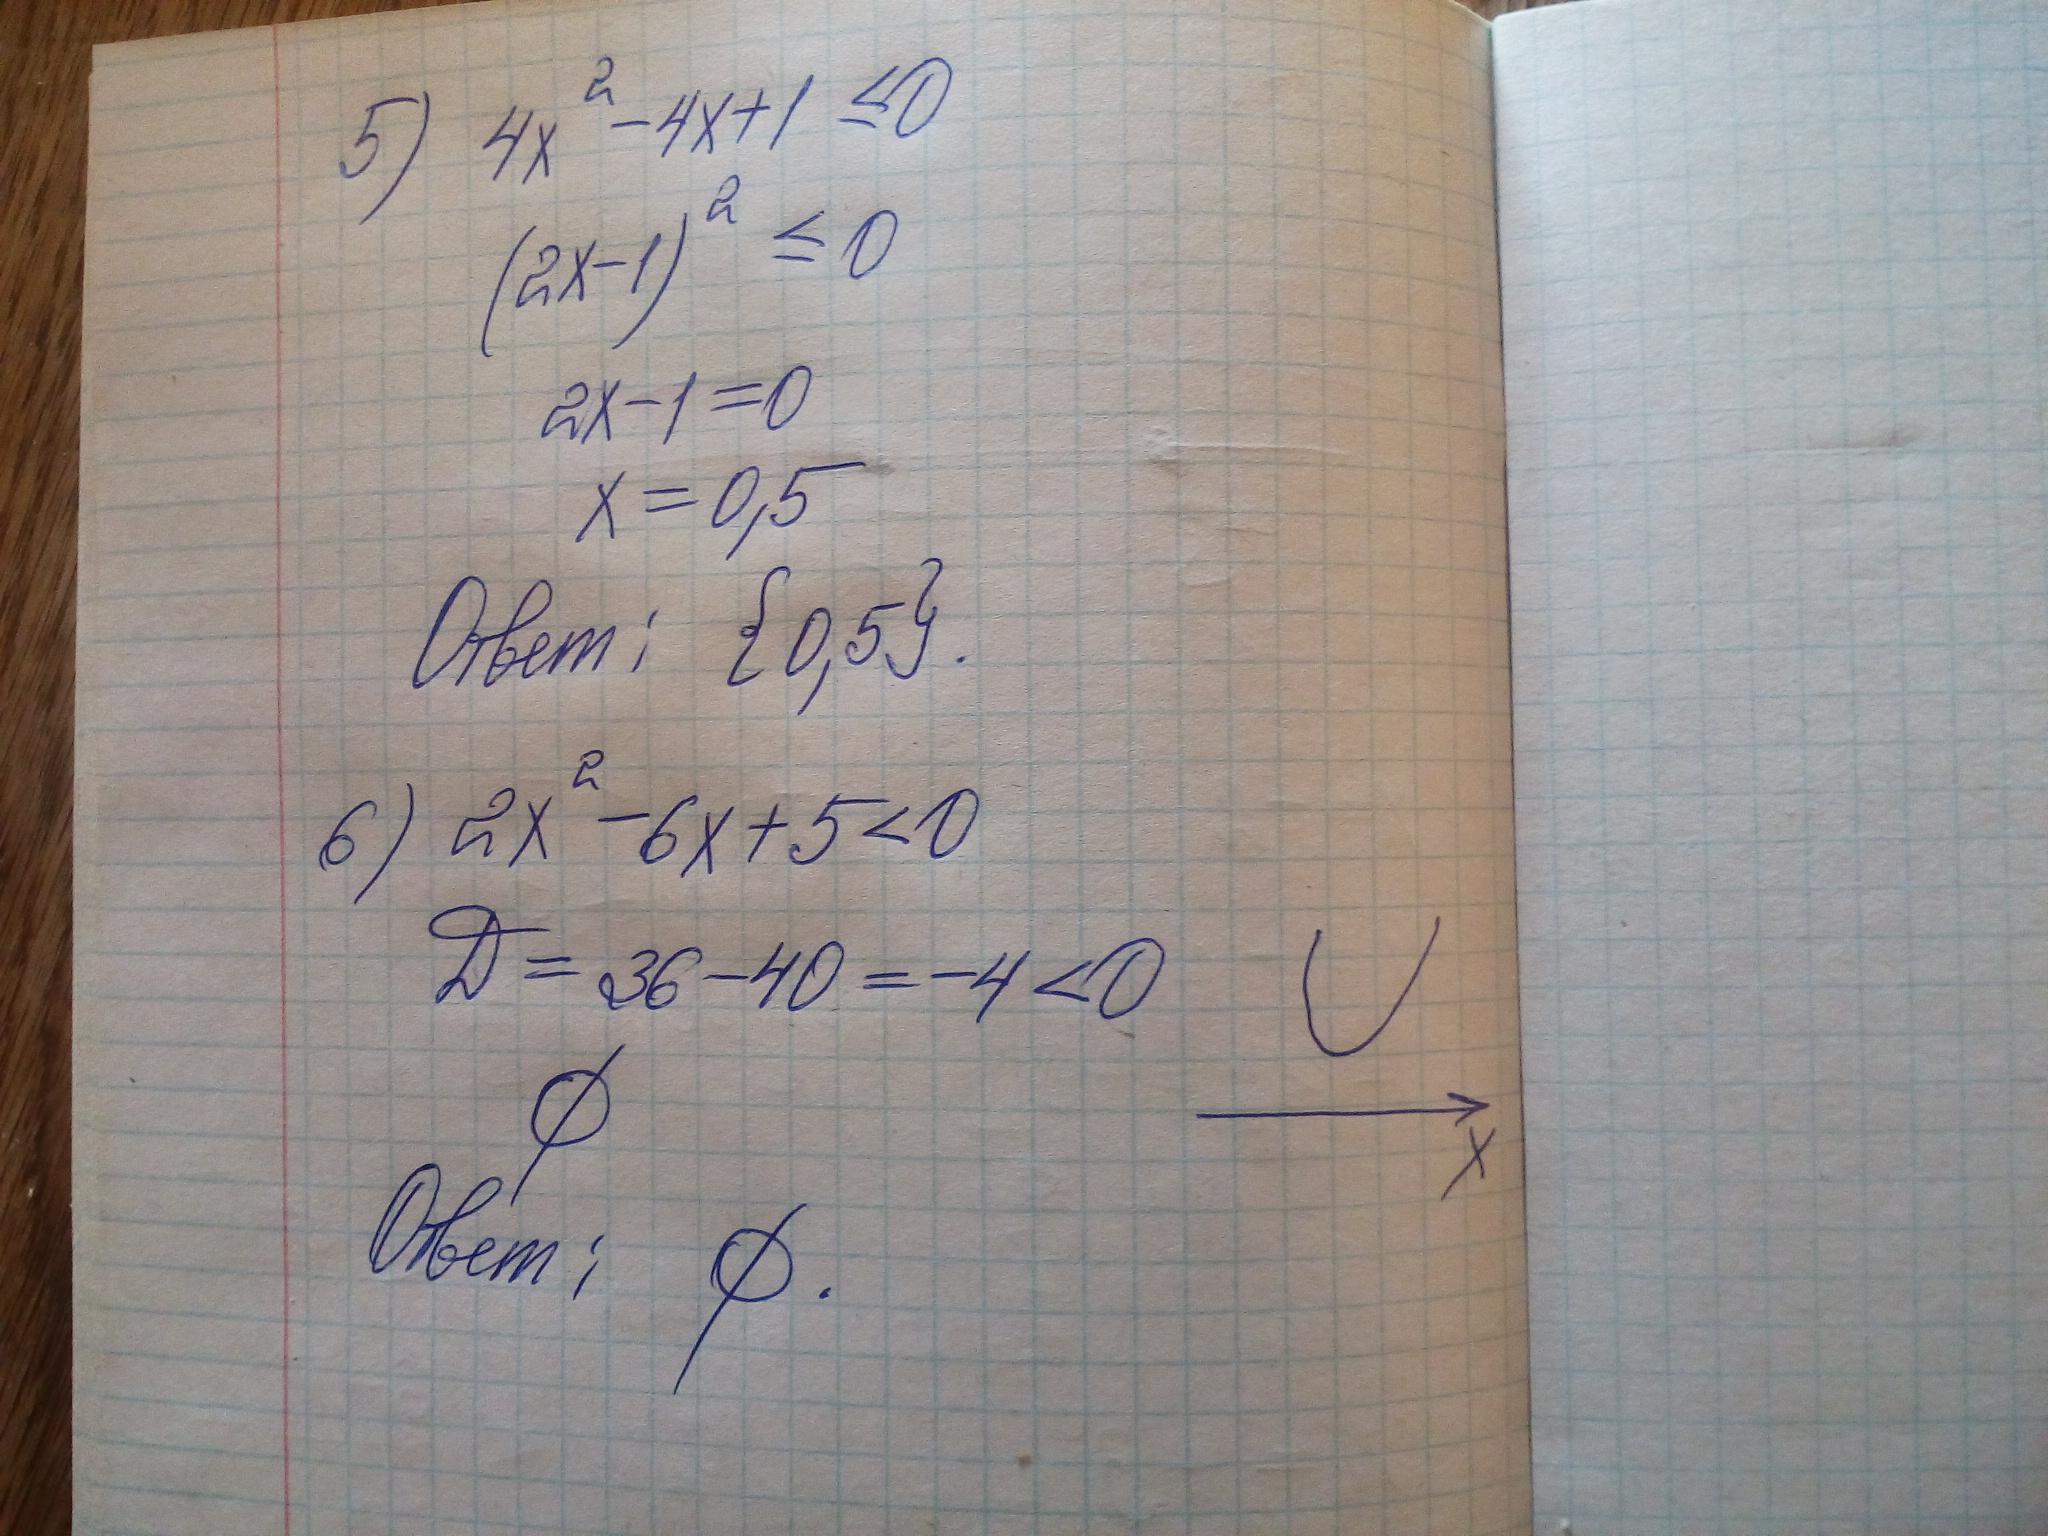 5) 4x² - 4x + 1 ≤ 0
(2x - 1)² ≤ 0
2x - 1 = 0
x = 0,5
Ответ: {0,5}.
6) 2x² - 6x + 5 < 0
D = 36 - 40 = -4 < 0
∅
x
Ответ: ∅.